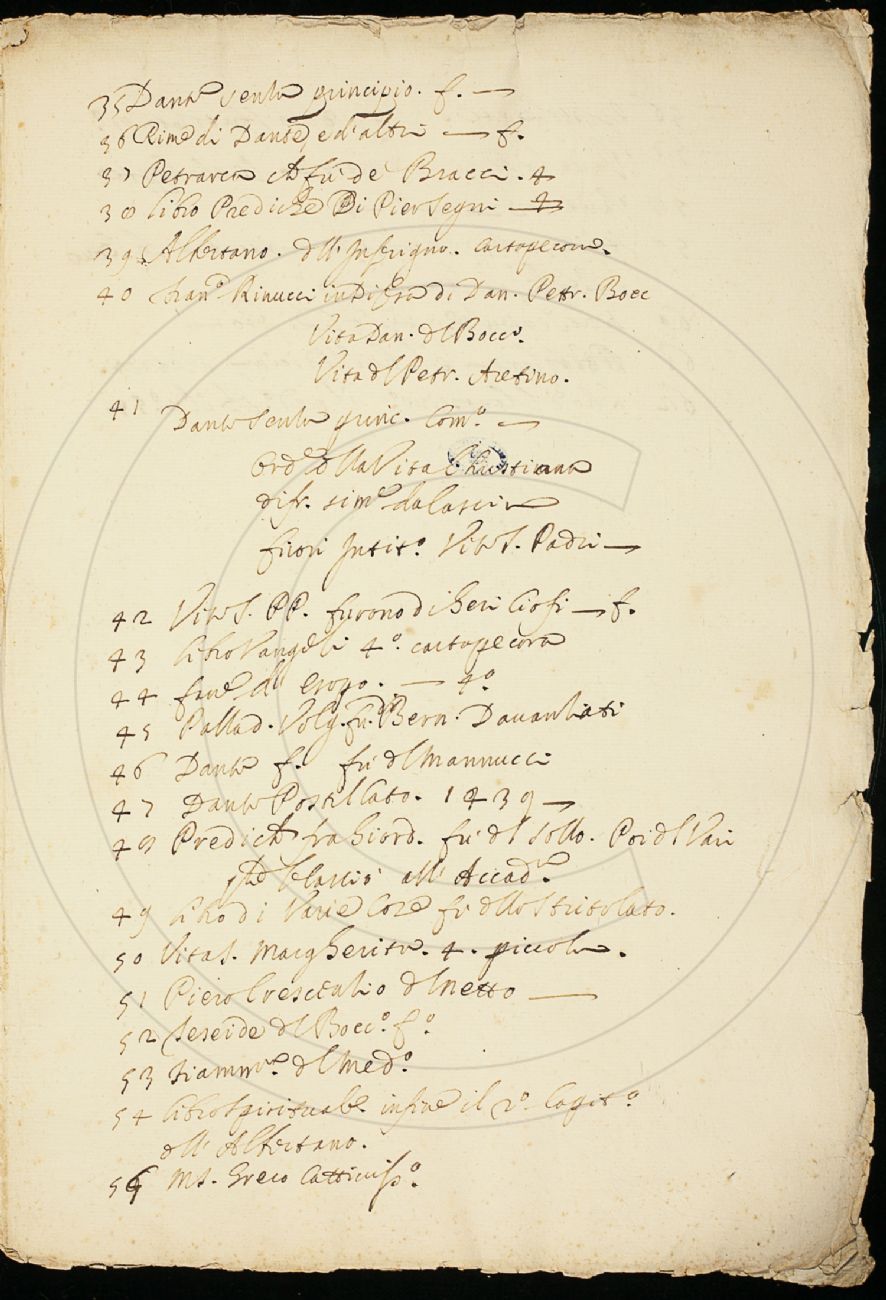 35 Dante senza principio. f. —
36 Rime di Dante, e d'altri — f.
37 Petrarca ch fu de' Bracci. 4
38 Libro Prediche Di Pier Segni — 4
39 Albertano. dll' Inferigno. Cartapecora.
40 Rinucci in Difesa di Dan. Petr. Bocc
Vita Dan. dl Bocc.º
Vita dl Petr. Aretino.
41 Dante senza princ. Com.º —
Ord.e dlla Vita Christiana
di fr. Sim.e da Cascia
fuori Intit.º Vite S. Padri —
42 Vite S. PP. furono di Neri — f.
43 Libro Vangeli 4.º cartapecora
44 d'Esopo. — 4.º
45 Pallad. Volg. fu di Bern. Davanzati
46 Dante f. fu dl Mannucci
47 Dante Postillato. 1439 —
48 Predich fra Giord. fu dl Sollo. Poi dl Vai
lasciò all' Accad.a
49 Libro di Varie Cose fu dllo Stritolato.
50 Vita S. Margherita. 4. piccola.
51 Piero Crescenzio dl Netto —
52 Teseide dl Bocc.º f.º
53 Fiamm.a dl Med.º
54 Libro Spirituale. in fine il 2.º Capit.º
dll' Albertano.
55 MS. Greco Cattiviss.º